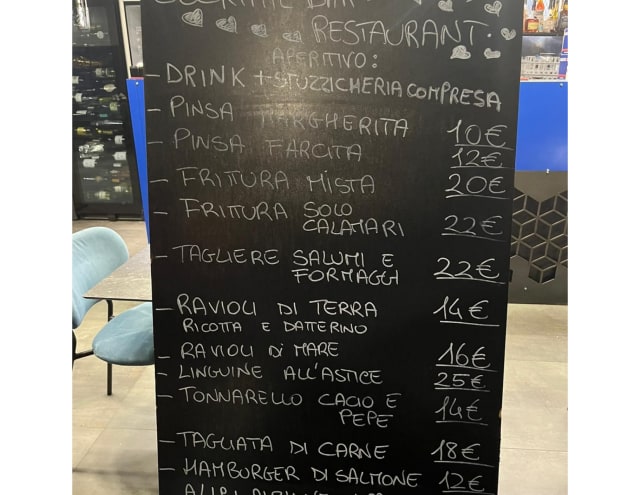 COCKTAIL BAR
RESTAURANT.
APERITIVO:
- DRINK + STUZZICHERIA COMPRESA
- PINSA MARGHERITA 10€
- PINSA FARCITA 12€
- FRITTURA MISTA 20€
- FRITTURA SOLO
CALAMARI 22€
- TAGLIERE SALUMI E
FORMAGGI 22€
- RAVIOLI DI TERRA 14€
RICOTTA E DATTERINO
- RAVIOLI DI MARE 16€
- LINGUINE ALL'ASTICE 25€
- TONNARELLO CACIO E
PEPE 14€
- TAGLIATA DI CARNE 18€
- HAMBURGER DI SALMONE 12€